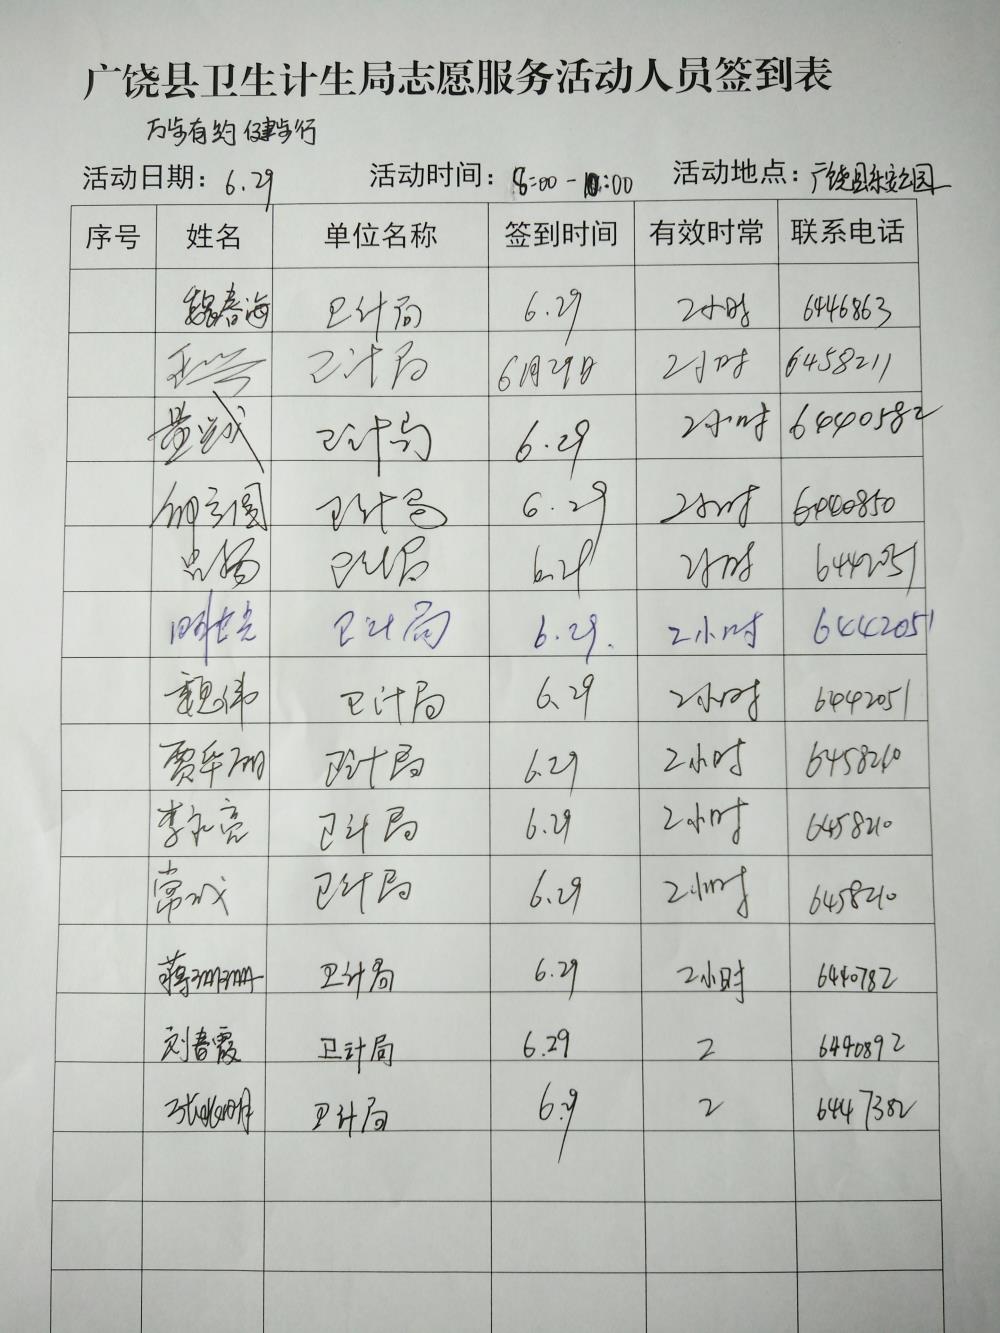 广饶县卫生计生局志愿服务活动人员签到表
万步有约 健步行
活动日期：6.29 活动时间：8:00-10:00 活动地点：广饶县乐安公园
序号 姓名 单位名称 签到时间 有效时常 联系电话
魏春海 卫计局 6.29 2小时 6446863
卫计局 6月29日 2小时 6458211
卫计局 6.29 2小时 6440582
卫计局 6.29 2小时 6440850
卫计局 6.29 2小时 6442051
卫计局 6.29. 2小时 6442051
魏伟 卫计局 6.29 2小时 6442051
贾华明 卫计局 6.29 2小时 6458210
李永亮 卫计局 6.29 2小时 6458210
常成 卫计局 6.29 2小时 6458210
蒋珊珊 卫计局 6.29 2小时 6440782
刘春霞 卫计局 6.29 2 6440892
卫计局 6.29 2 6447382